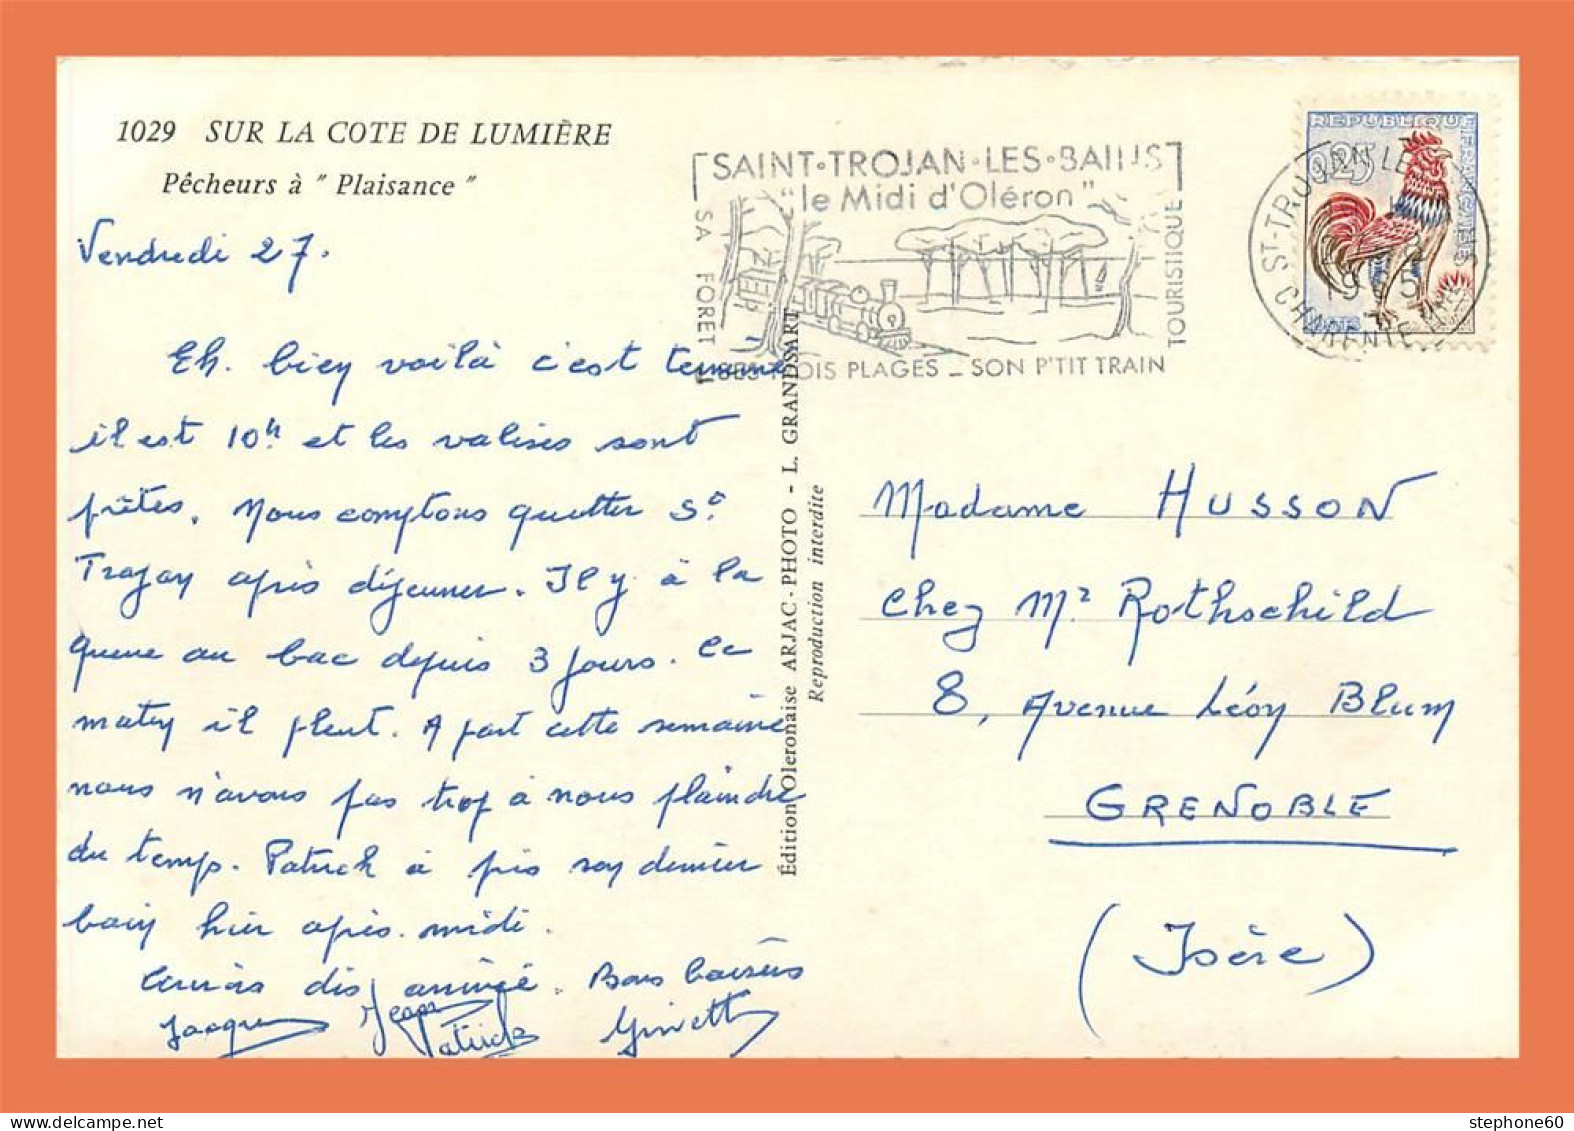 1029 SUR LA COTE DE LUMIÈRE
Pêcheurs à " Plaisance "
Vendredi 27.
Eh. bien voilà c'est terminé
il est 10h et les valises sont
prêtes. Nous comptons quitter St
Trojan après déjeuner. Il y à la
queue au bac depuis 3 jours. Ce
matin il pleut. A part cette semaine
nous n'avons pas trop à nous plaindre
du temps. Patrick à pris son dernier
bain hier après-midi.
Bons baisers
Jacques Jean Patrick Ginette
Édition Oleronaise ARJAC-PHOTO - L. GRANDSART
Reproduction interdite
SAINT•TROJAN•LES•BAINS
"le Midi d'Oléron"
SA FORET
SES TROIS PLAGES _ SON P'TIT TRAIN
TOURISTIQUE
REPUBLIQUE FRANÇAISE
0,25
ST-TROJAN LES
CHARENTE
Madame HUSSON
Chez Mr Rothschild
8, Avenue Léon Blum
GRENOBLE
(Isère)
stephone60